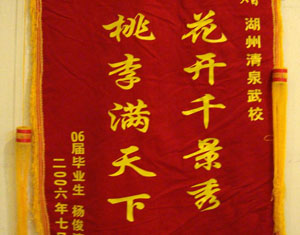 赠 湖州清泉武校
花开千景秀
桃李满天下
06届毕业生 杨俊
二〇〇六年七